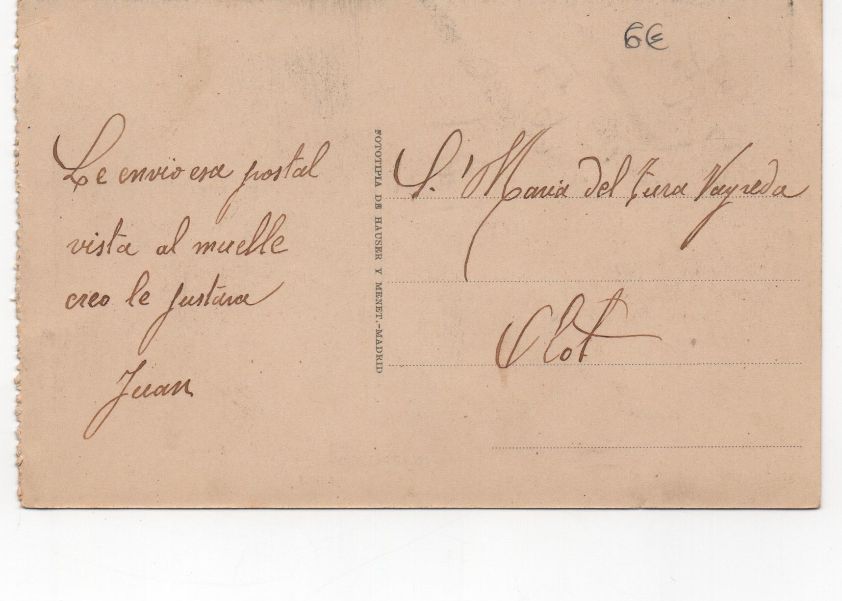 6€
Le envio esa postal
vista al muelle
creo le gustara
Juan
FOTOTIPIA DE HAUSER Y MENET.-MADRID
S.ª Maria del Tura Vayreda
Olot